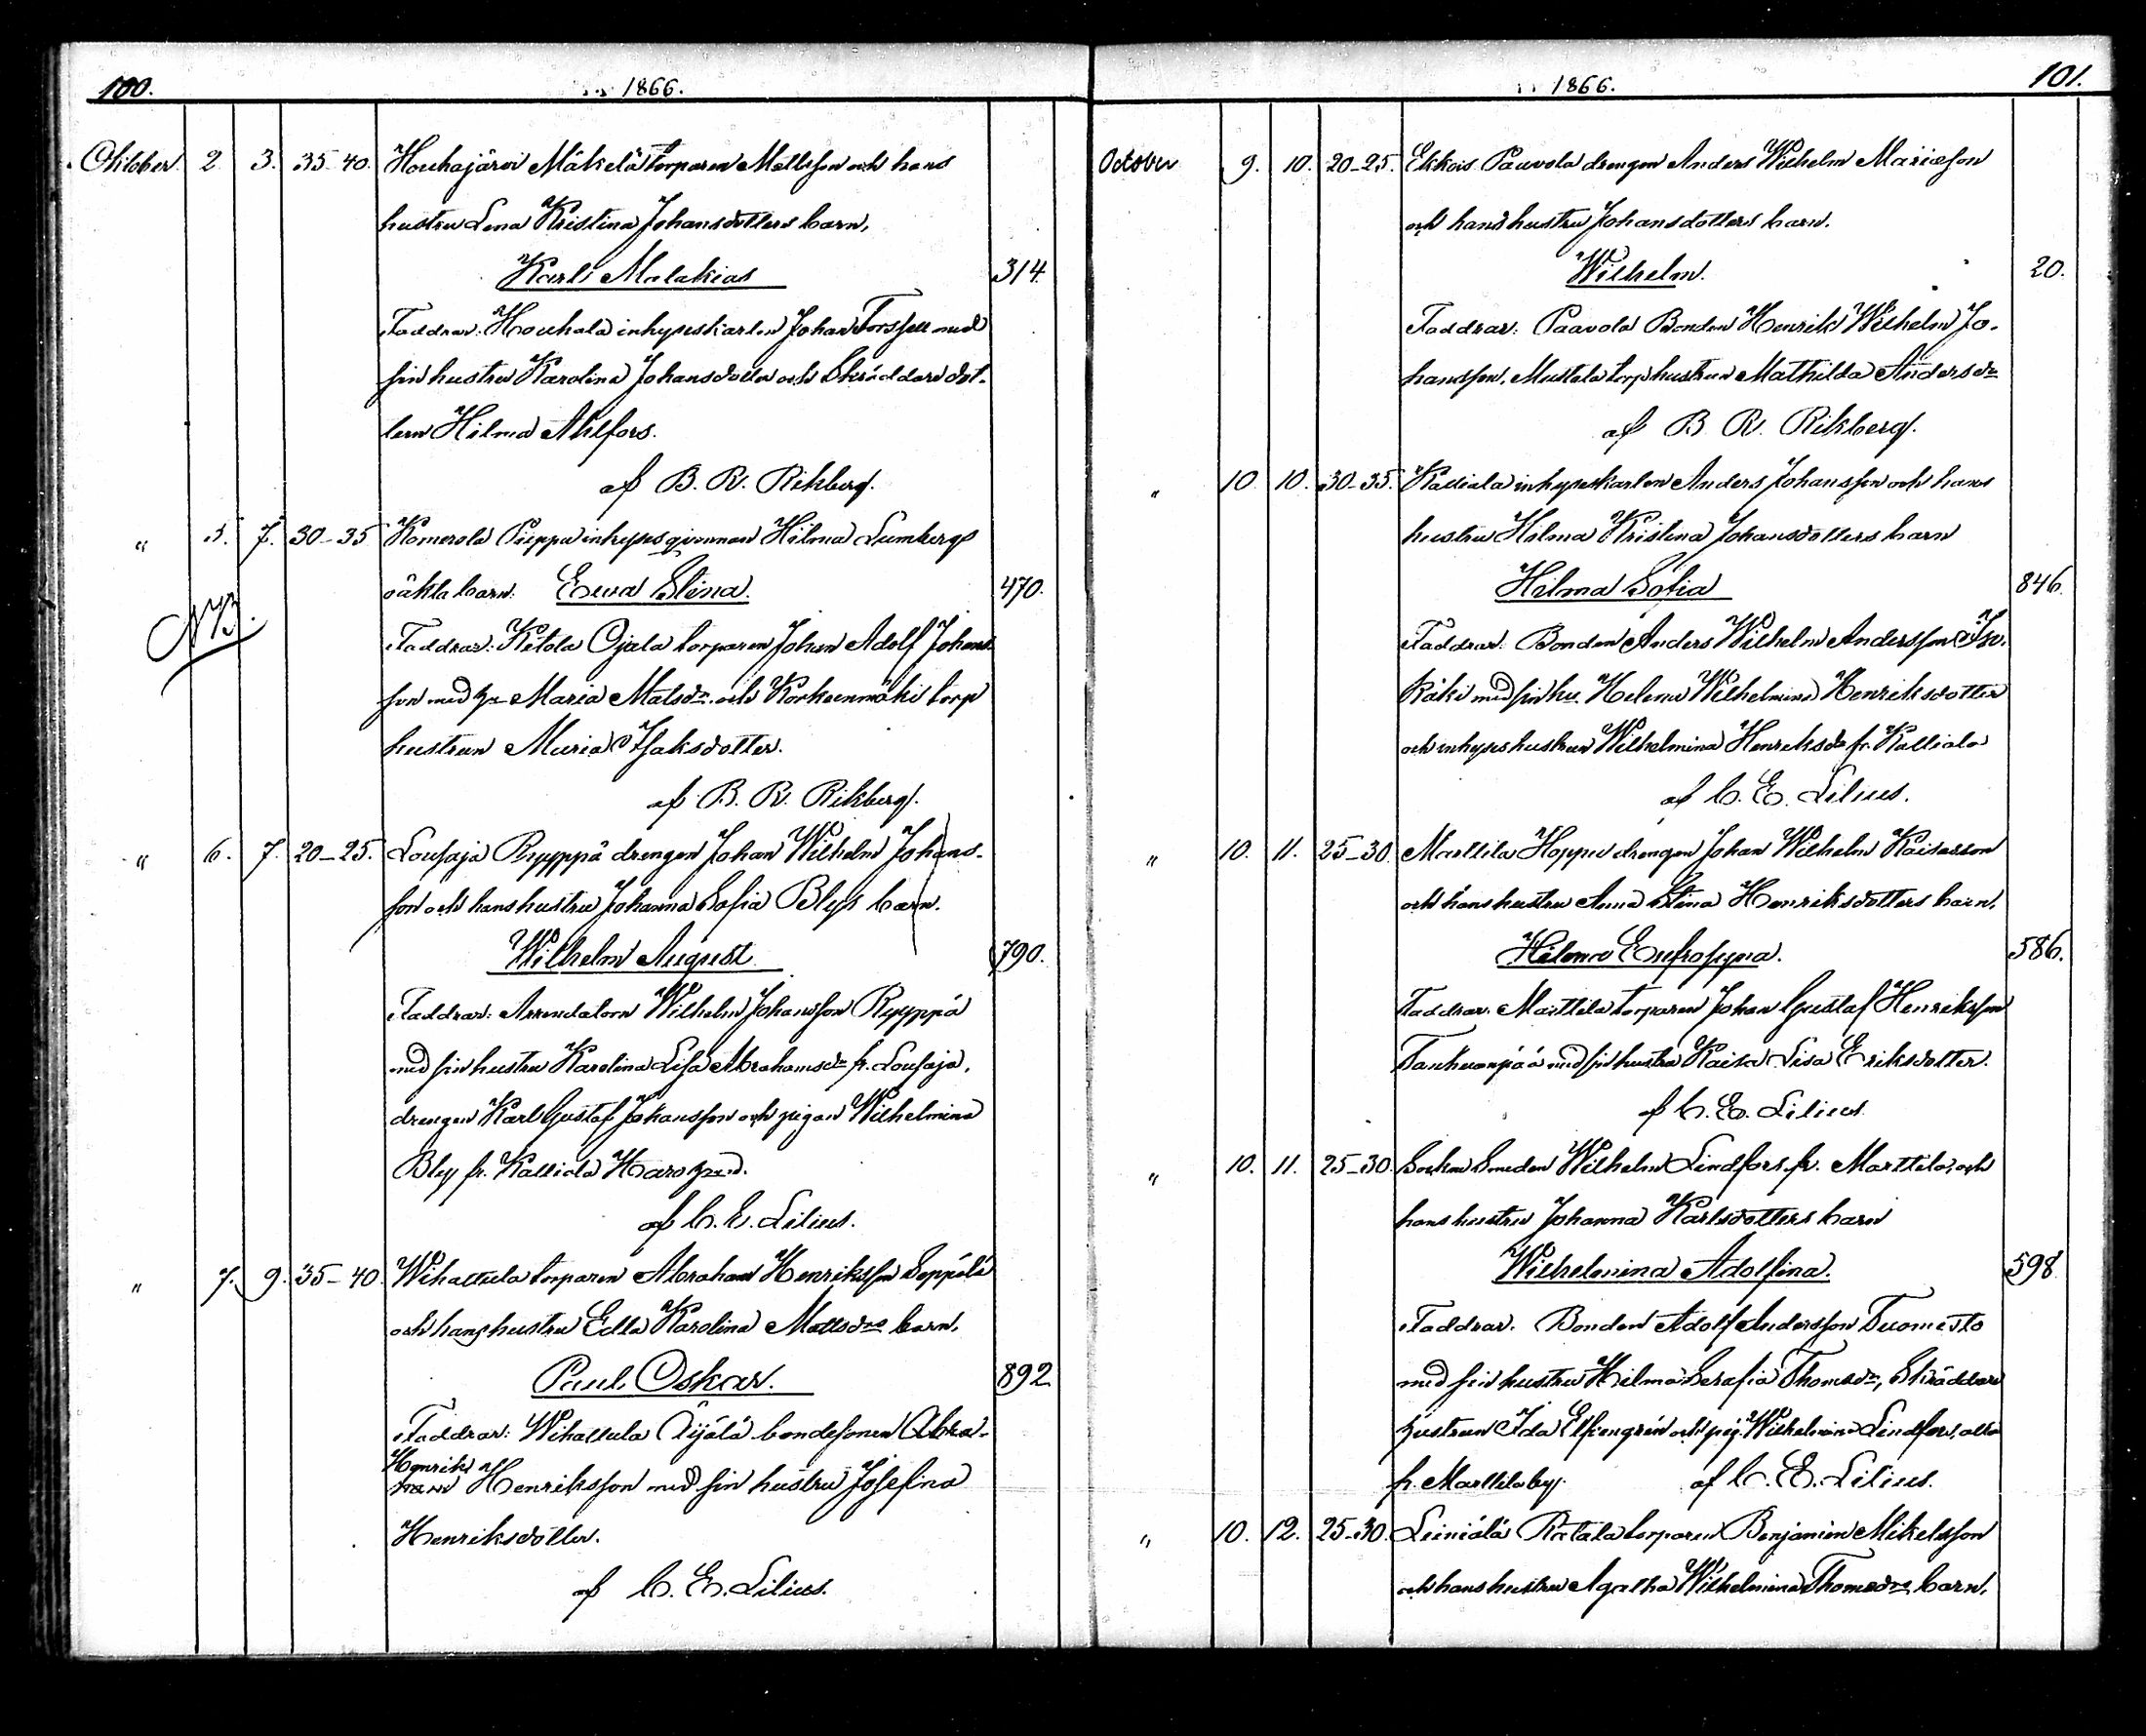 100. 1866.
Oktober. 2. 3. 35-40. Houhajärvi Mäkelä torparen Mattsson och hans
hustru Lena Kristina Johansdotters barn,
Karl Malakias 314.
Faddrar: Houhala inhyseskarlen Johan Forssell med
sin hustru Karolina Johansdotter och Skräddaredot-
tern Hilma Ahlfors.
af B. R. Rikberg.
" 5. 7. 30-35 Komerola Pieppu inhysesqvinnan Hilma Lumbergs
oäkta barn. Ewa Stina. 470.
NB.
Faddrar: Ketola Ojala torparen Johan Adolf Johans-
son med hu Maria Matsdr. och Korkeenmäki torp
hustrun Maria Isaksdotter.
af B. R. Rikberg.
" 6. 7. 20-25. Lousaja Ryyppä drengen Johan Wilhelm Johans-
son och hans hustru Johanna Sofia Blys barn.
Wilhelm August 790.
Faddrar: Arrendatorn Wilhelm Johansson Ryyppä
med sin hustru Karolina Lisa Abrahamsdr fr. Lousaja,
drengen Karl Gustaf Johansson och pigan Wilhelmina
Bly fr. Kalliala Haro
af C. E. Lilius.
" 7. 9. 35-40 Wihattula torparen Abraham Henriksson Seppälä
och hans hustru Edla Karolina Mattsdrs barn,
Paul Oskar. 892
Faddrar: Wihattula Äijälä bondesonen Abra-
Henrik
ham Henriksson med sin hustru Josefina
Henriksdotter.
af C. E. Lilius.
1866. 101.
October 9. 10. 20-25. Ekkois Paavola drengen Anders Wilhelm Mariæson
och hans hustru Johansdotters barn.
Wilhelm. 20.
Faddrar: Paavola Bonden Henrik Wilhelm Jo-
hansson, Mustala torphustrun Mathilda Andersdr
af B R. Rikberg.
" 10. 10. 30-35. Kalliala inhyseskarlen Anders Johansson och hans
hustru Hilma Kristina Johansdotters barn
Hilma Sofia 846.
Faddrar: Bonden Anders Wilhelm Andersson Iso-
Räki med sin hu. Helena Wilhelmina Henriksdotter
och inhyseshustrun Wilhelmina Henriksdr fr. Kalliala
af C. E. Lilius.
" 10. 11. 25-30. Marttila Hoppu drengen Johan Wilhelm Kaisasson
och hans hustru Anna Stina Henriksdotters barn,
Hilma Eufrosyna. 586.
Faddrar: Marttila torparen Johan Gustaf Henriksson
Tanhuanpää med sin hustru Kaisa Lisa Eriksdotter.
af C. E. Lilius.
" 10. 11. 25-30. Sockne Smeden Wilhelm Lindfors fr. Marttila, och
hans hustru Johanna Karlsdotters barn
Wilhelmina Adolfina. 598
Faddrar. Bonden Adolf Andersson Tuomisto
med sin hustru Hilma Serafia Thomasdr, Skräddare
hustrun Ida Elfvengrén och pig. Wilhelmina Lindfors, alla
fr. Marttila by. af C. E. Lilius.
" 10. 12. 25-30. Leiniälä Ratala torparen Benjamin Mikelsson
och hans hustru Agatha Wilhelmina Thomasdrs barn,